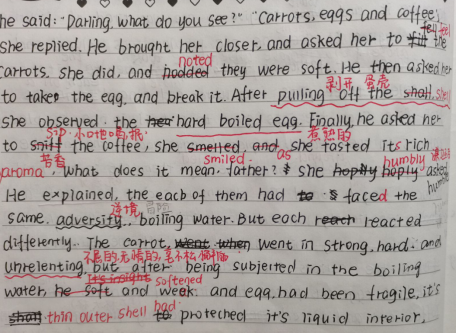 he said: "Darling, what do you see?" "Carrots, eggs and coffee",
she replied. He brought her closer, and asked her to feel the
noted
carrots. she did, and nodded they were soft. He then asked her
剥开 蛋壳
to take the egg, and break it. After pulling off the shall, shell
she observed the her hard boiled egg. Finally, he asked her
sip 小口地喝,抿 煮熟的
to sniff the coffee, she smelled, and, she tasted its rich
芳香 smiled. as humbly
aroma, what does it mean, father? she hoplly hoply asked
humbly
He explained, the each of them had to faced the
逆境
same adversity. boiling water. But each reach reacted
differently. The carrot, went when went in strong, hard. and
不屈的
unrelenting. but after being subjected in the boiling
It's insight softened
water he soft and weak. and egg, had been fragile, it's
had
shan thin outer shell to proteched it's liquid interior,